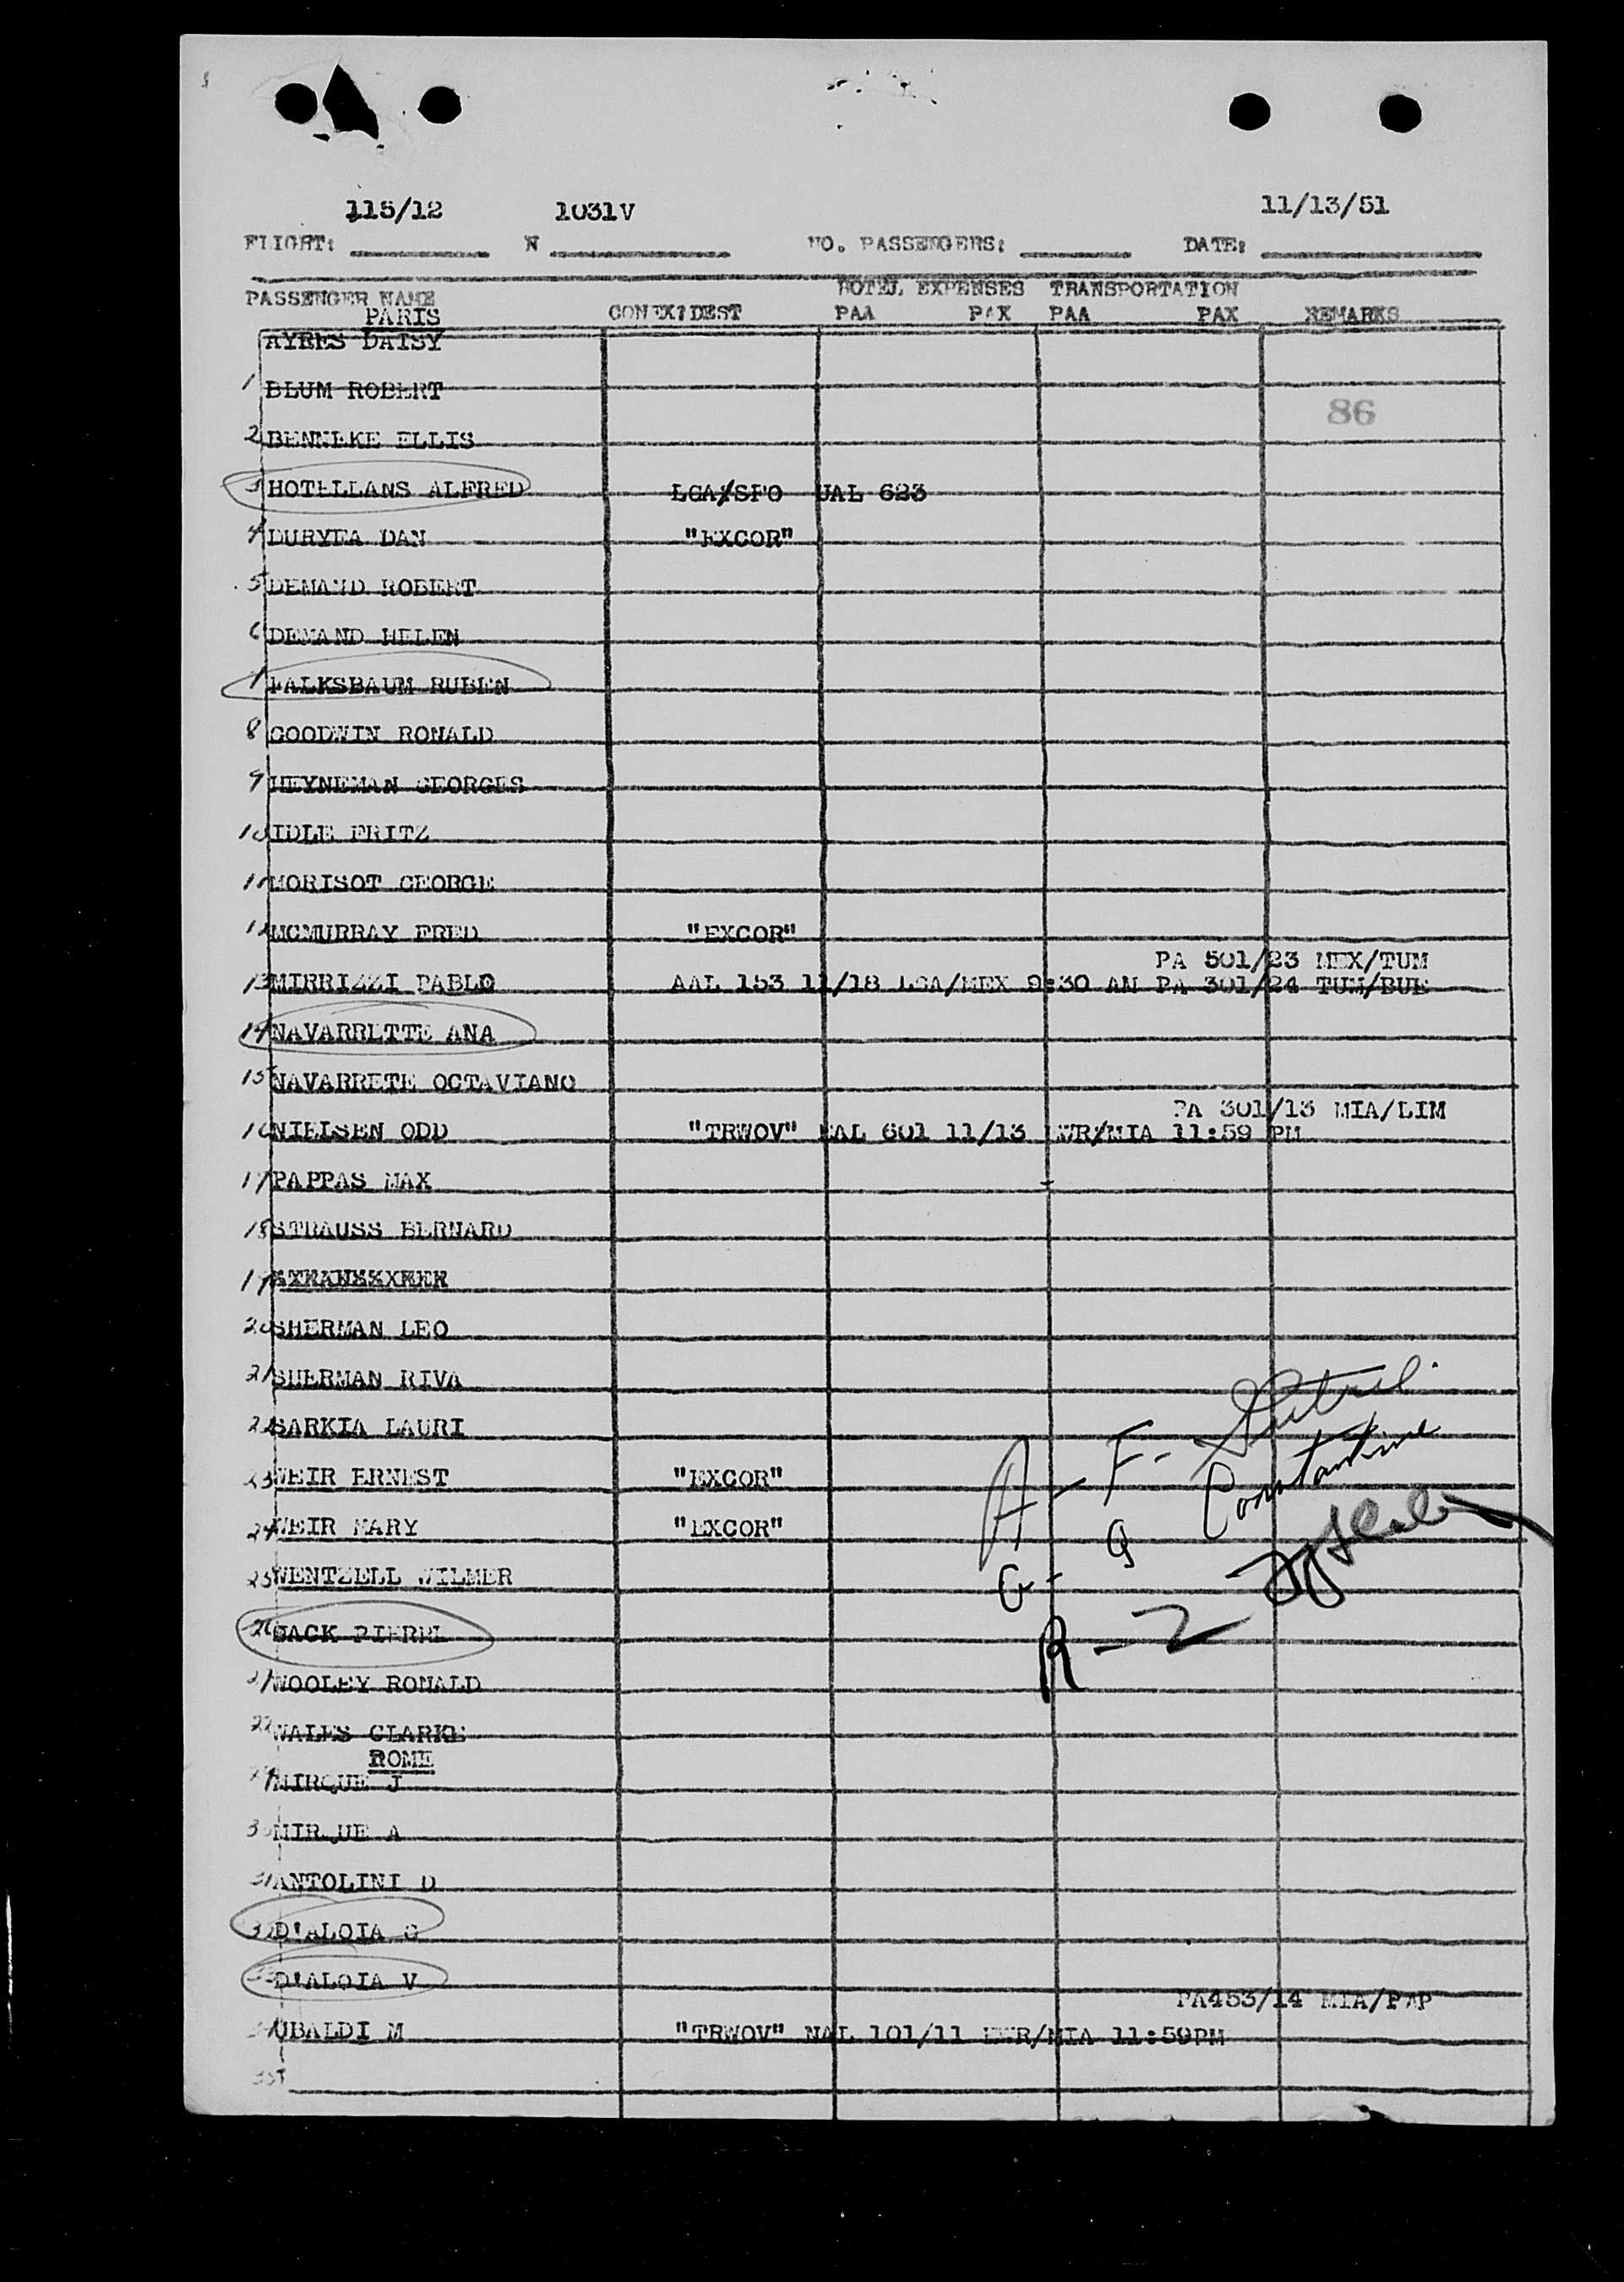 115/12 1031V 11/13/51
FLIGHT: N NO. PASSENGERS: DATE:
HOTEL EXPENSES TRANSPORTATION
PASSENGER NAME CONEX?DEST PAA PAX PAA PAX REMARKS
PARIS
AYRES DAISY
1 BLUM ROBERT
86
2 BENNEKE ELLIS
3 HOTELLANS ALFRED LGA/SFO UAL 623
4 DURYEA DAN "EXCOR"
5 DEMAND ROBERT
6 DEMAND HELEN
7 FALKSBAUM RUBEN
8 GOODWIN RONALD
9 HEYNEMAN GEORGES
10 IDLE FRITZ
11 MORISOT GEORGE
12 MCMURRAY FRED "EXCOR"
PA 501/23 MEX/TUM
13 MIRRIZZI PABLO AAL 153 11/18 LGA/MEX 9:30 AM PA 301/24 TUM/BUE
14 NAVARRETTE ANA
15 NAVARRETE OCTAVIANO
PA 301/13 MIA/LIM
16 NIELSEN ODD "TRWOV" EAL 601 11/13 EWR/MIA 11:59 PM
17 PAPPAS MAX
18 STRAUSS BERNARD
19
20 SHERMAN LEO
21 SHERMAN RIVA
22 SARKIA LAURI
23 WEIR ERNEST "EXCOR"
A - F -
Constantine
24 WEIR MARY "EXCOR"
G - Q
25 WENTZELL WILMER
R - Z
26 SACK PIERRE
27 WOOLEY RONALD
WALES CLARKE
ROME
MIRQUE J
30 MIRQUE A
31 ANTOLINI D
32 D'ALOIA G
D'ALOIA V
PA453/14 MIA/PAP
UBALDI M "TRWOV" NAL 101/11 EWR/MIA 11:59PM
35